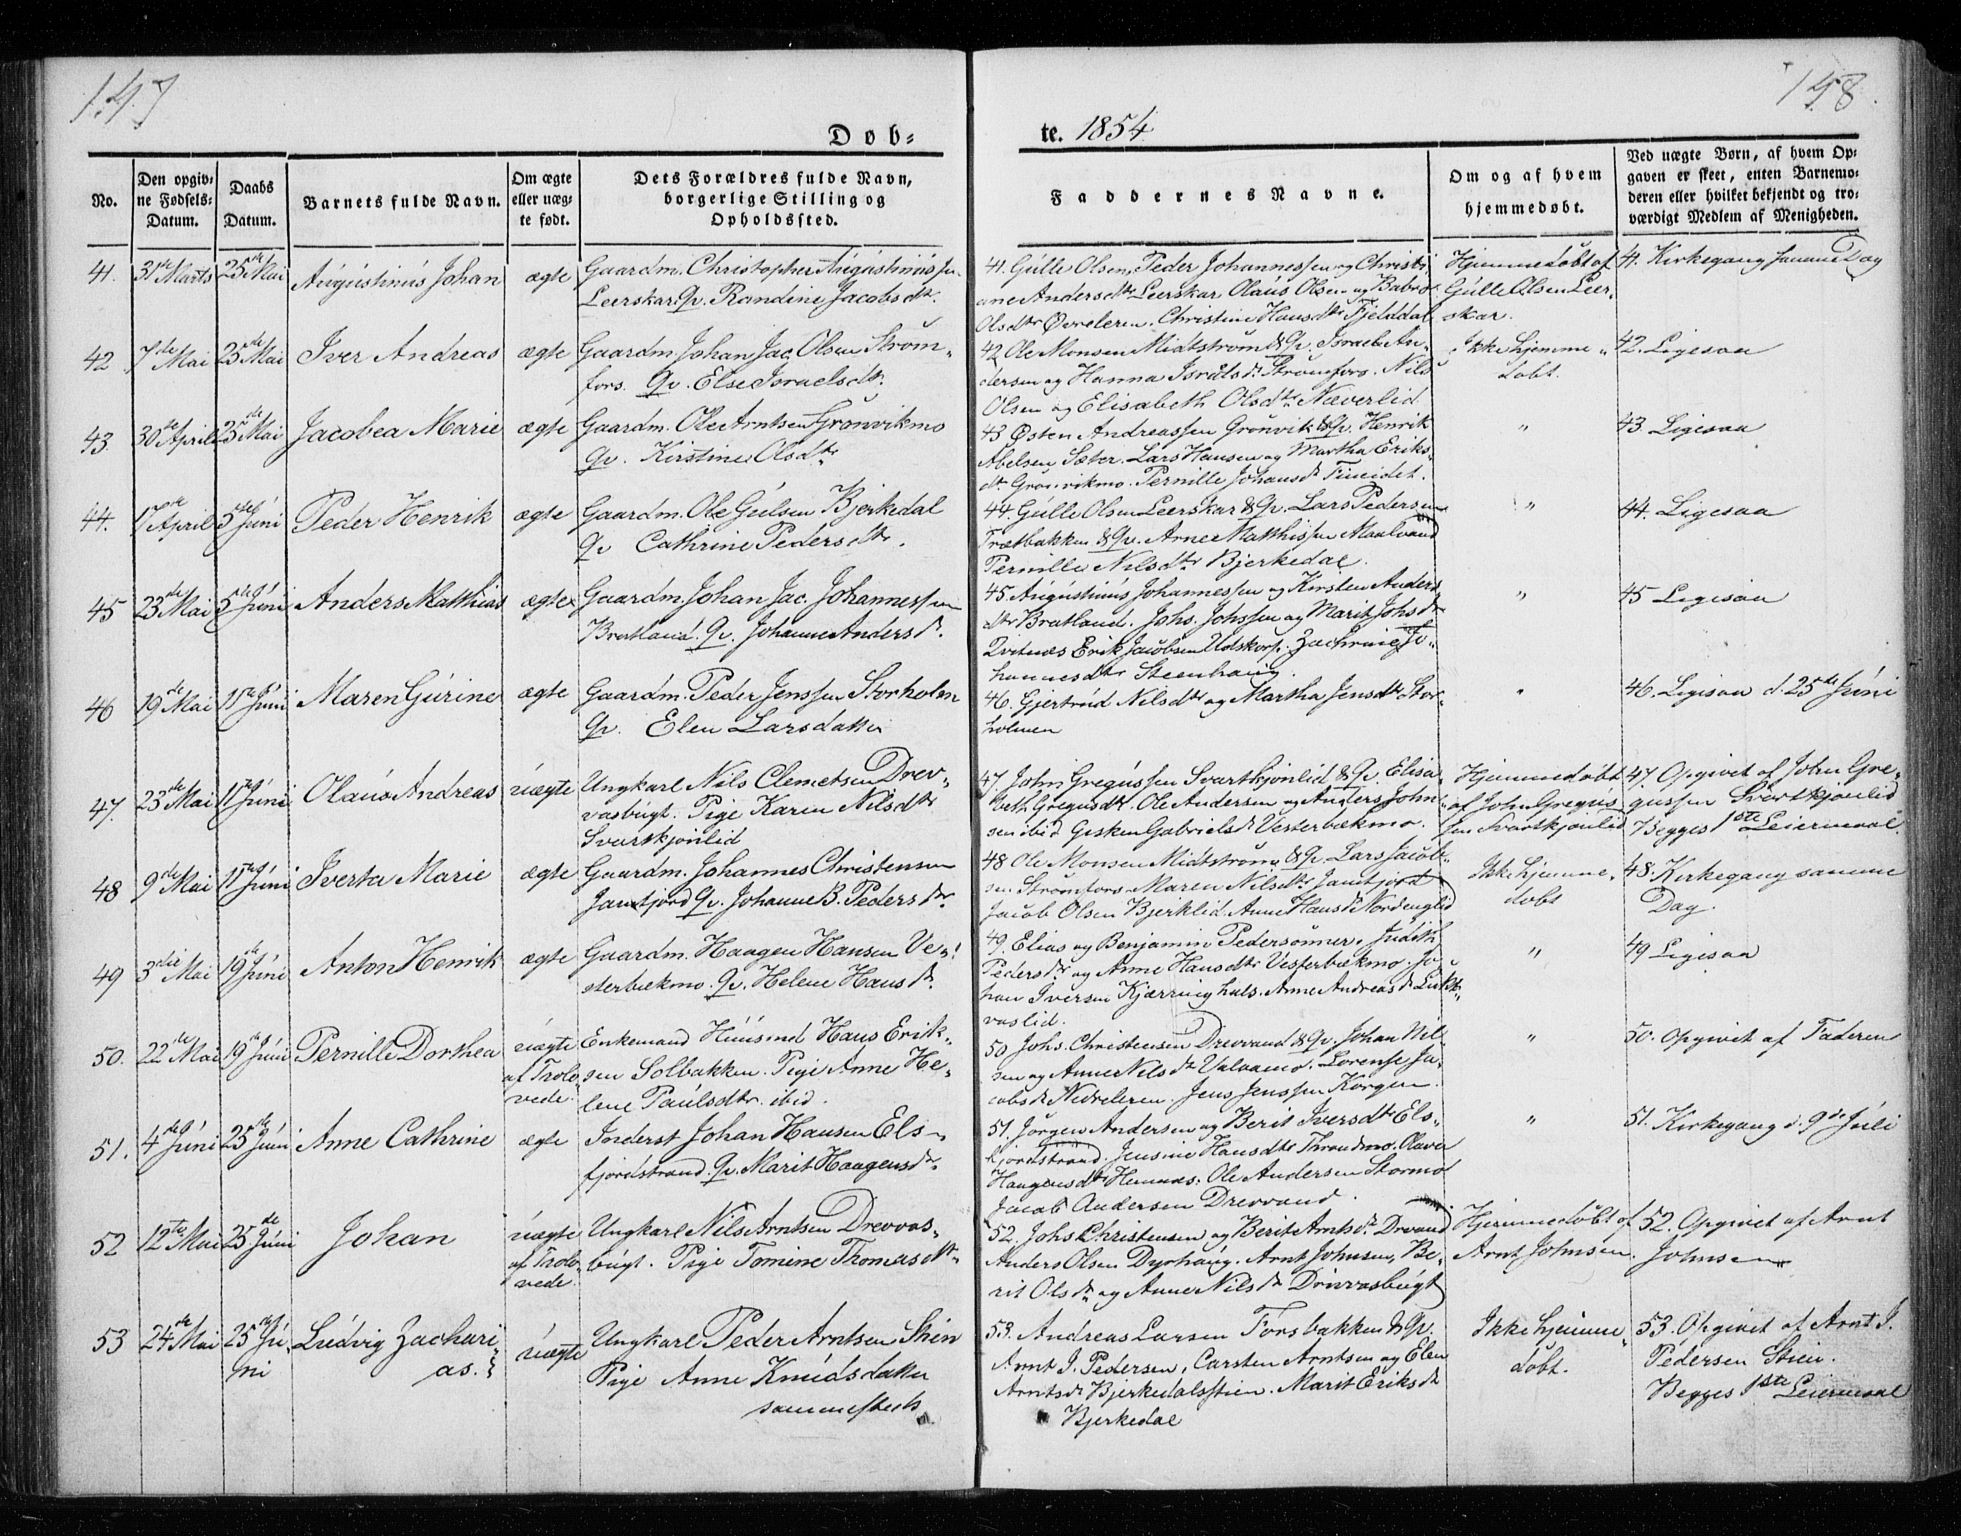 147
148.
Døb-
te. 1854.
No.
Den opgiv-
ne Fødsels-
Datum.
Daabs
Datum.
Barnets fulde Navn.
Om ægte
eller uæg-
te født.
Dets Forældres fulde Navn,
borgerlige Stilling og
Opholdssted.
Faddernes Navne.
Om og af hvem
hjemmedøbt.
Ved uægte Børn, af hvem Op-
gaven er skeet, enten Barnemo-
deren eller hvilket bekjendt og tro-
værdigt Medlem af Menigheden.
41. 31te Marts 25de Mai Augustinus Johan ægte Gaardm. Christopher Augustinussen
Leerskar Qv. Randine Jacobsdtr.
41. Gulle Olsen, Peder Johannessen og Christi
ane Andersdtr Leerskar Olaus Olsen og
Olsdtr Øvreleren. Christine Hansdtr Fjelddal
Hjemmedøbt af
Gulle Olsen Leer-
skar.
41. Kirkegang samme Dag
42 7de Mai 25de Mai Iver Andreas ægte Gaardm. Johan Jac. Olsen Strøm-
fors. Qv. Else Israelsdtr.
42. Ole Monsen Midtstrøm & Qv. Israel An-
dersen og Hanna Isralsdtr Strømfors. Nils
Olsen og Elisabeth Olsdtr Næverlid
Ikke hjemme-
døbt.
42. Ligesaa
43. 30te April 25de Mai Jacobea Marie ægte Gaardm. Ole Arntsen Grønvikmo
Qv. Kirstine Olsdtr
43 Østen Andreassen Grønvik & Qv. Henrik
Abelsen Sæter. Lars Hansen og Martha Eriks-
dtr Grønvikmo. Pernille Johansdtr Fineidet.
"
43. Ligesaa
44. 17de April 5te Juni Peder Henrik ægte Gaardm. Ole Gulsen Bjerkedal
Qv. Cathrine Pedersdtr.
44 Gulle Olsen Leerskar & Qv. Lars Pedersen
Trætbakken & Qv. Arne Matthissen Maalvand
Pernille Nilsdtr Bjerkedal.
"
44. Ligesaa
45 23de Mai 5te Juni Anders Matthias ægte Gaardm. Johan Jac. Johannessen
Bratland. Qv. Johanne Andersdtr.
45. Augustinus Johannessen og Kirsten Anders
dtr Bratland. Johs. Johssen og Marit Johsdtr
Qvitnæs Erik Jacobsen Utskarp. Jo-
hannesdtr Steenhaug.
"
45 Ligesaa
46 19de Mai 11te Juni Maren Gurine ægte Gaardm. Peder Jenssen Storholm
Qv. Elen Larsdatter
46. Gjertrud Nilsdtr og Martha Jensdtr Stor-
holmen
"
46. Ligesaa d. 25de Juni
47. 23de Mai 11te Juni Olaus Andreas uægte Ungkarl Nils Clemetsen Drev-
vasbugt. Pige Karen Nilsdtr
Svartskjønlid
47. John Gregussen Svartskjønlid & Qv. Elisa
beth Gregusdtr. Ole Andersen og Anders John-
sen ibid Gisken Gabrielsdtr Vesterbækmo.
Hjemmedøbt
af John Gregus
sen Svartskjønlid
47. Opgivet af John Gre-
gussen Svartskjønlid
Begges 1ste Leiermaal
48 9de Mai 11te Juni Iverta Marie ægte Gaardm. Johannes Christensen
Jamtjord Qv. Johanne B. Pedersdtr.
48 Ole Monsen Midtstrøm & Qv. Lars Jacob-
sen Strømfors. Maren Nilsdtr Jamtjord
Jacob Olsen Bjerklid. Anne Hansdtr Nordenglid
Ikke hjemme-
døbt
48. Kirkegang samme
Dag.
49 3die Mai 19de Juni Anton Henrik ægte Gaardm. Haagen Hansen Ve-
sterbækmo. Qv. Helene Hansdtr.
49. Elias og Benjamin Pedersønner, Judith
Pedersdtr og Anne Hansdtr Vesterbækmo. Jo
han Iversen Kjærringhals. Anne Andreasdtr
vaslid.
"
49 Ligesaa
50. 22de Mai 19de Juni Pernille Dorthea uægte
af Trolo-
vede.
Enkemand Huusmd Hans Erik-
sen Solbakken. Pige Anne He-
lene Paulsdtr. ibid.
50. Johs. Christensen Drevvand & Qv. Johan Nil-
sen og Anne Nilsdtr Valaamo. Lorense Ja-
cobsdtr Nedreleren. Jens Jenssen Korgen.
"
50. Opgivet af Faderen
51. 4de Juni 25de Juni Anne Cathrine ægte Inderst Johan Hansen Els-
fjordstrand. Qv. Marit Haagensdtr.
51. Jørgen Andersen og Berit Iversdtr Els-
fjordstrand. Jensine Hansdtr Thraudmo. Olava
Haagensdtr Hemnæs. Ole Andersen Stormo
Jacob Andersen Drevvand.
"
51. Kirkegang d. 9de Juli
52 12te Mai 25de Juni Johan uægte
af Trolo-
vede.
Ungkarl Nils Arntsen Drevvas-
bugt. Pige Tomine Thomasdtr.
52. Johs Christensen og Berit Arntsdtr Drevand
Anders Olsen Dyrhaug. Arnt Johnsen, Be-
rit Olsdtr og Anne Nilsdtr Drevvasbugt
Hjemmedøbt af
Arnt Johnsen.
52. Opgivet af Arnt
Johnsen
53 24de Mai 25de Ju
ni
Ludvig Zachari-
as.
uægte Ungkarl Peder Arntsen Stien
Pige Anne Knudsdatter
sammesteds
53. Andreas Larsen Forsbakken & Qv.
Arnt J. Pedersen, Carsten Arntsen og Elen
Arntsdtr Bjerkedalsstien. Marit Eriksdtr
Bjerkedal
Ikke hjemme-
døbt.
53. Opgivet af Arnt J.
Pedersen Stien.
Begges 1ste Leiermaal